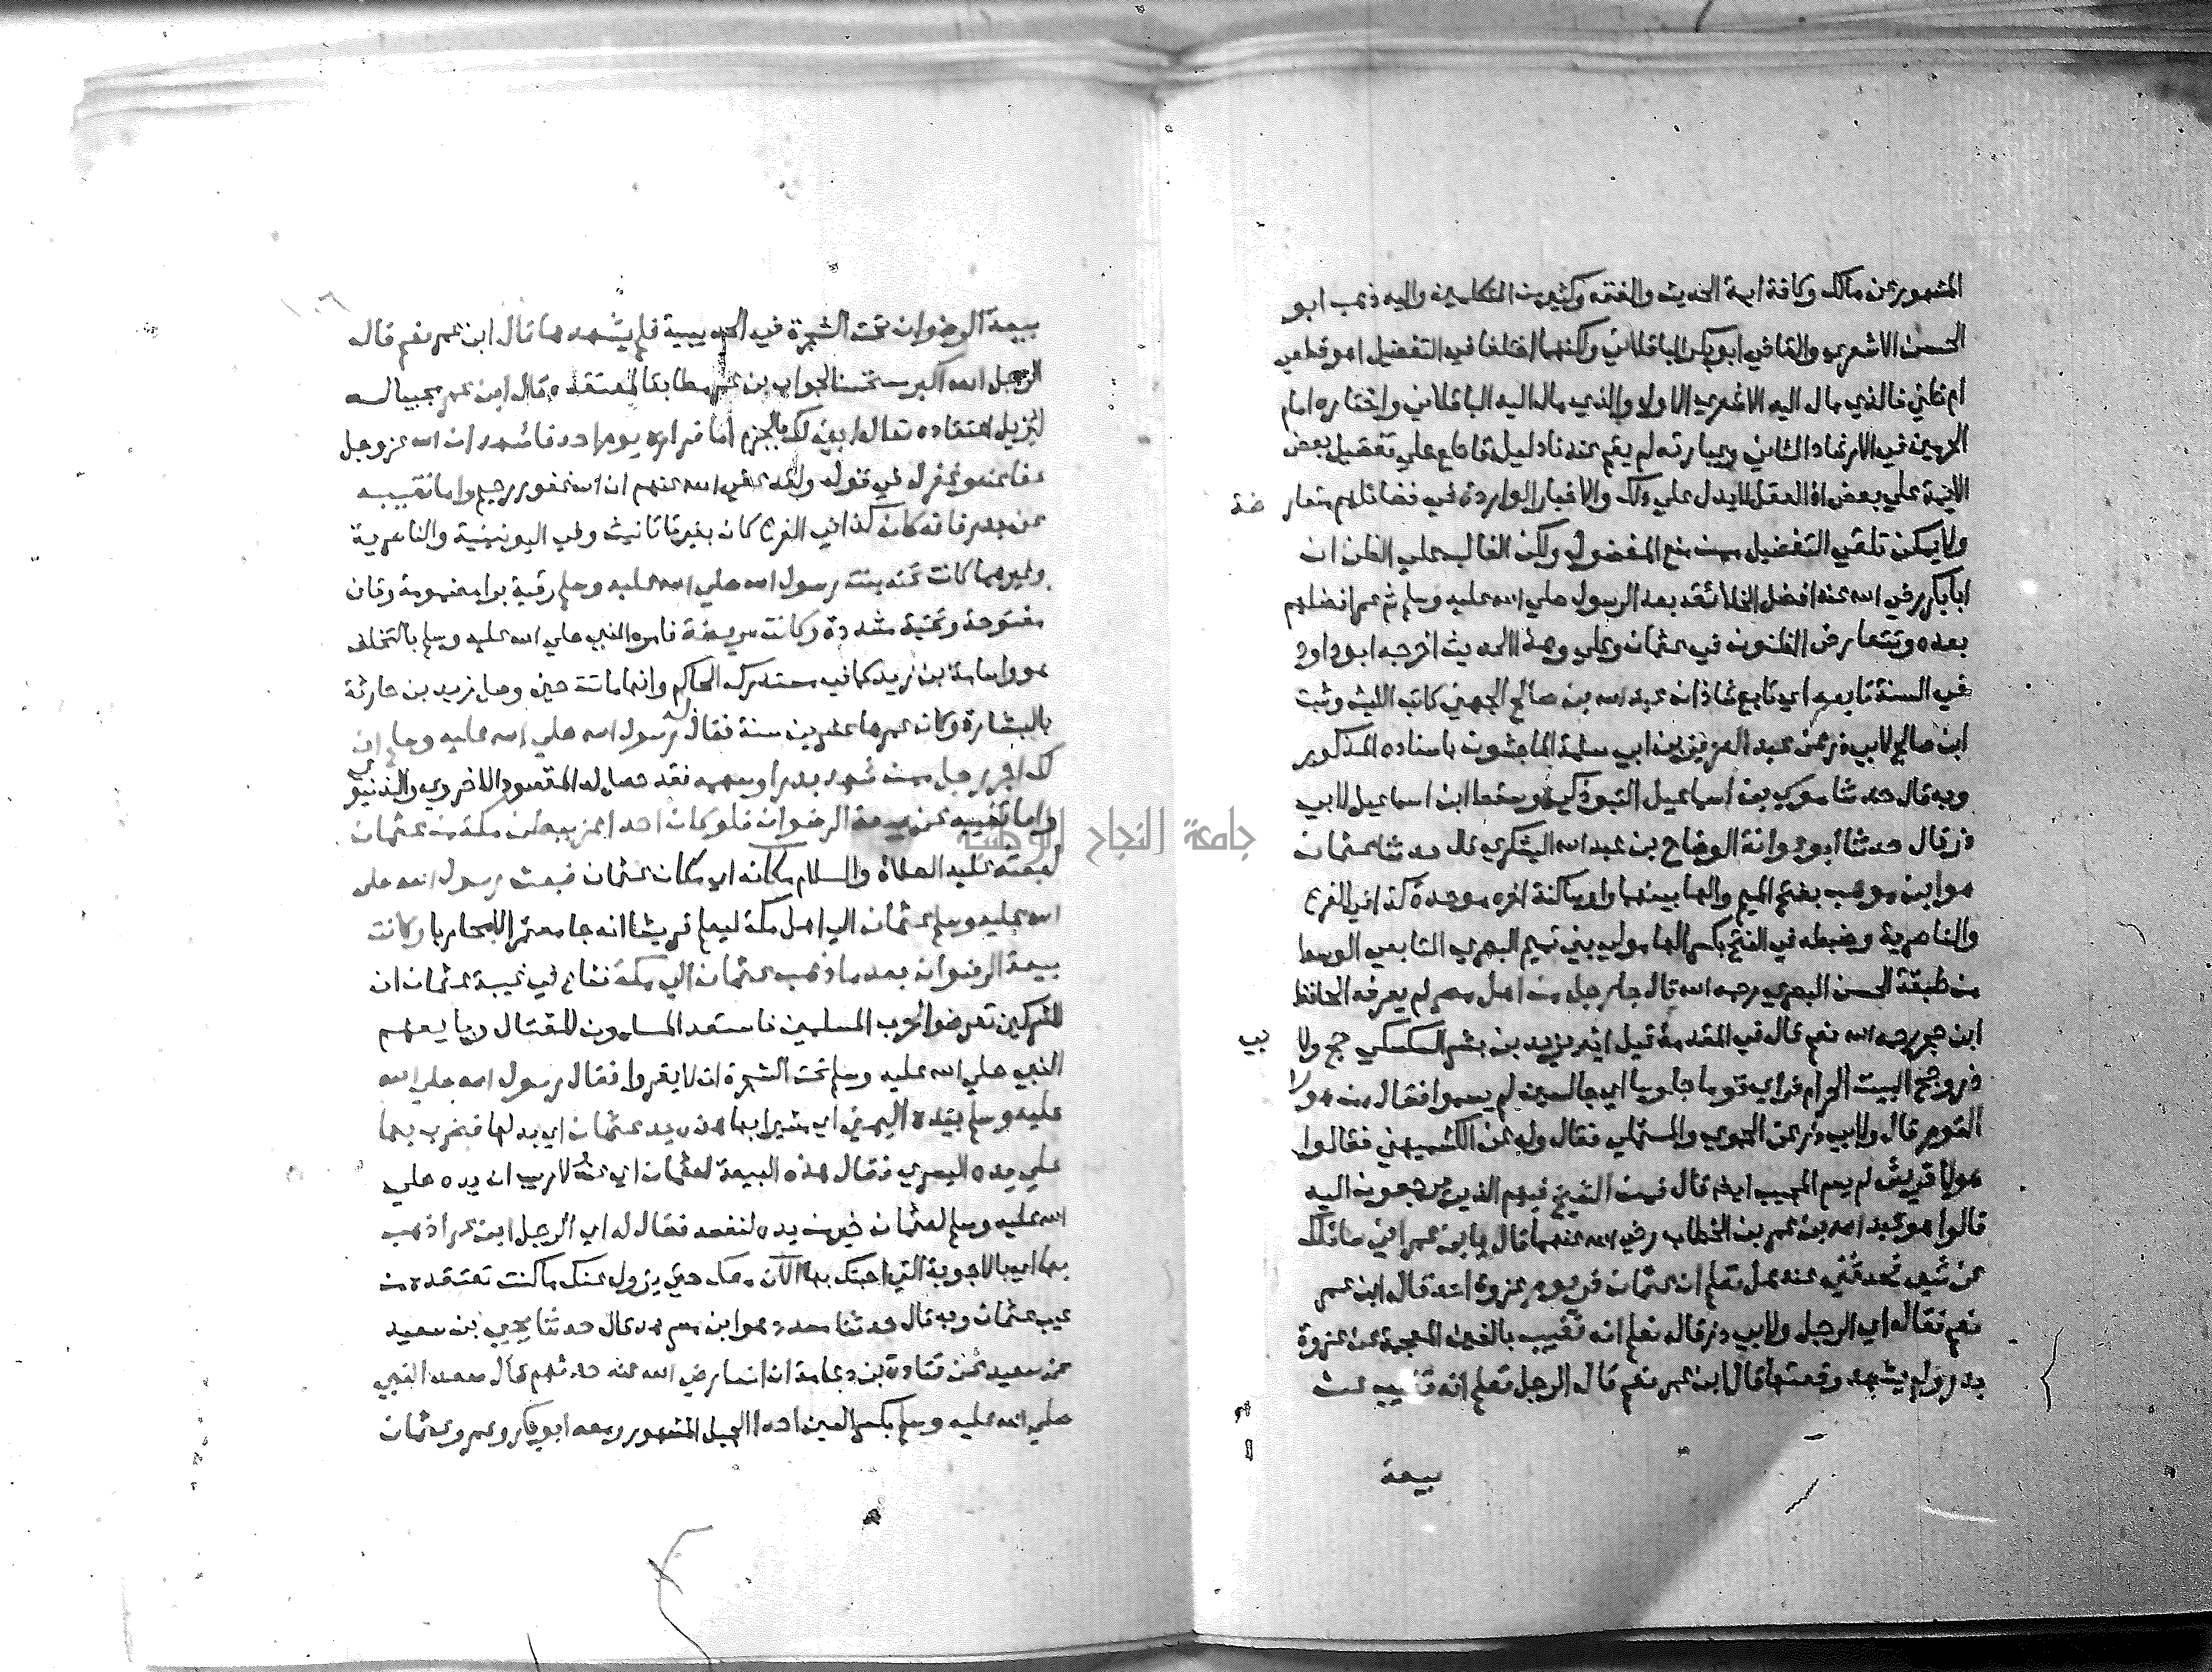 المشهور عن مالك وكافة ايمة الحديث والفقه وكثير من المتكلمين واليه ذهب ابو
الحسن الاشعري والقاضي ابو بكر الباقلاني ولكنهما اختلفا في التفضيل اهو قطعي
ام ظني فالذي مال اليه الاشعري الاول والذي مال اليه الباقلاني واختاره امام
الحرمين في الارشاد الثاني وعبارته لم يقم عندنا دليل قاطع علي تفضيل بعض
الايمة علي بعض اذ العقل لا يدل علي ذلك والاخبار الواردة في فضائلهم متعار ضة
ولا يمكن تلقي التفضيل ممن منع المفضول ولكن الغالب علي الظن ان
ابا بكر رضي الله عنه افضل الخلائق بعد الرسول صلي الله عليه وسلم ثم عمر افضلهم
بعده وتتعارض الظنون في عثمان وعلي وهذا الحديث اخرجه ابو داود
في السنة تابعه اي تابع شاذان عبد الله بن صالح الجهني كاتب الليث وثبت
ابن صالح لابي ذر عن عبد العزيز بن ابي سلمة الماجشون باسناده المذكور
وبه قال حدثنا موسي بن اسماعيل التبوذكي وسقط ابن اسماعيل لابي
ذر قال حدثنا ابو عوانة الوضاح بن عبد الله اليشكري قال حدثنا عثمان
هو ابن موهب بفتح الميم والها بينهما واو ساكنة اخره موحدة كذا في الفرع
والناصرية وضبطه في الفتح بكسر الها مولي بني تيم البصري التابعي الوسط
من طبقة الحسن البصري رحمه الله قال جا رجل من اهل مصر لم يعرفه الحافظ
ابن حجر رحمه الله نعم قال في المقدمة قيل انه يزيد بن بشر السكسكي حج ولا بي
ذر وحج البيت الحرام فراي قوما جلوسا اي جالسين لم يسموا فقال من هولا
القوم قال ولابي ذر عن الحموي والمستملي فقال وله عن الكشميهني فقالوا
هولا قريش لم يسم المجيب ايضا قال فمن الشيخ فيهم الذي يرجعون اليه
قالوا هو عبد الله بن عمر بن الخطاب رضي الله عنهما قال يا ابن عمر اني سائلك
عن شي فحدثني عنه هل تعلم ان عثمان فر يوم غزوة احد قال ابن عمر
نعم فقال اي الرجل ولابي ذر قال تعلم انه تغيب بالغين المعجمة عن غزوة
بدر ولم يشهد وقعتها قال ابن عمر نعم قال الرجل تعلم انه تغيب عن
بيعة
بيعة الرضوان تحت الشجرة في الحديبية فلم يشهدها قال ابن عمر نعم قال
الرجل الله اكبر مستحسنا لجواب بن عمر مطابقا لمعتقده قال ابن عمر مجيبا له
ليزيل اعتقاده تعال ابين لك بالجزم اما فراره يوم احد فاشهد ان الله عز وجل
عفا عنه وغفر له في قوله ولقد عفي الله عنهم ان الله غفور رحيم واما تغيبه
عن بدر فانه كان كذا في الفرع كان بغير تا تانيث وفي اليونينية والناصرية
وغيرهما كانت تحته بنت رسول الله صلي الله عليه وسلم رقية برا مضمومة وقاف
مفتوحة وتحتية مشددة وكانت مريضة فامره النبي صلي الله عليه وسلم بالتخلف
هو واسامة بن زيد كما في مستدرك الحاكم وانها ماتت حين وصل زيد بن حارثة
بالبشارة وكان عمرها عشرين سنة فقال له رسول الله صلي الله عليه وسلم ان
لك اجر رجل ممن شهد بدرا وسهمه فقد حصل له المقصود الاخروي والدنيوي
واما تغيبه عن بيعة الرضوان فلو كان احد اعز ببطن مكة من عثمان
لبعثه عليه الصلاة والسلام مكانه اي مكان عثمان فبعث رسول الله صلي
الله عليه وسلم عثمان الي اهل مكة ليعلم قريشا انه جا معتمرا لا محاربا وكانت
بيعة الرضوان بعد ما ذهب عثمان الي مكة فشاع في غيبة عثمان ان
المشركين تعرضوا لحرب المسلمين فاستعد المسلمون للقتال وبايعهم
النبي صلي الله عليه وسلم تحت الشجرة ان لا يفروا فقال رسول الله صلي الله
عليه وسلم بيده اليمني اي مشيرا بها هذه يد عثمان اي بدلها فضرب بها
علي يده اليسري فقال هذه البيعة لعثمان اي عنه لا ريب ان يده صلي
الله عليه وسلم لعثمان خير من يده لنفسه فقال له اي الرجل ابن عمر اذهب
بها اي بالاجوبة التي اجبتك بها الآن معك حتي يزول عنك ما كنت تعتقده من
عيب عثمان وبه قال حدثنا مسدد هو ابن مسرهد قال حدثنا يحيي بن سعيد
عن سعيد عن قتادة بن دعامة ان انسا رضي الله عنه حدثهم قال صعد النبي
صلي الله عليه وسلم بكسر العين احدا الجبل المشهور ومعه ابو بكر وعمر وعثمان
جامعة النجاح الوطنية